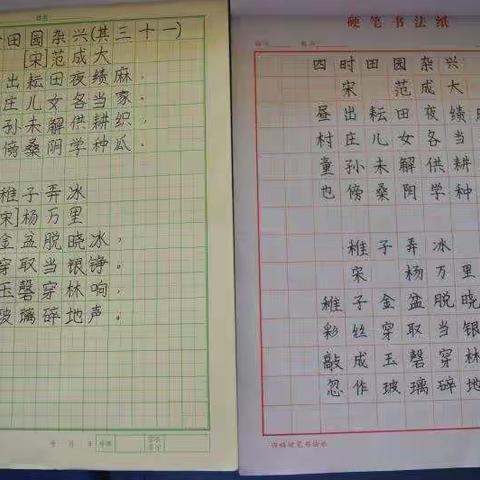 时田园杂兴(其三十一)
[宋]范成大
出耘田夜绩麻,
庄儿女各当家。
孙未解供耕织,
傍桑阴学种瓜。
稚子弄冰
宋]杨万里
金盆脱晓冰,
穿取当银铮。
玉磬穿林响,
玻璃碎地声。
硬笔书法纸
四时田园杂兴
宋 范成大
昼出耘田夜绩
村庄儿女各当
童孙未解供耕
也傍桑阴学种
稚子弄冰
宋 杨万里
稚子金盆脱晓
彩丝穿取当银
敲成玉磬穿林
忽作玻璃碎地